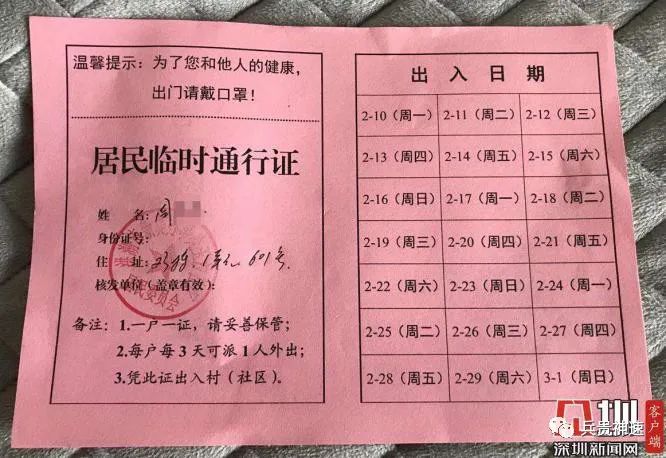 温馨提示：为了您和他人的健康，
出门请戴口罩！
居民临时通行证
姓　　名：周
身份证号：
住　　址：1单元601号
核发单位（盖章有效）：
居民委员会
备注：1.一户一证，请妥善保管；
2.每户每3天可派1人外出；
3.凭此证出入村（社区）。
出入日期
2-10（周一） 2-11（周二） 2-12（周三）
2-13（周四） 2-14（周五） 2-15（周六）
2-16（周日） 2-17（周一） 2-18（周二）
2-19（周三） 2-20（周四） 2-21（周五）
2-22（周六） 2-23（周日） 2-24（周一）
2-25（周二） 2-26（周三） 2-27（周四）
2-28（周五） 2-29（周六） 3-1（周日）
兵贵神速
深圳新闻网
客户端